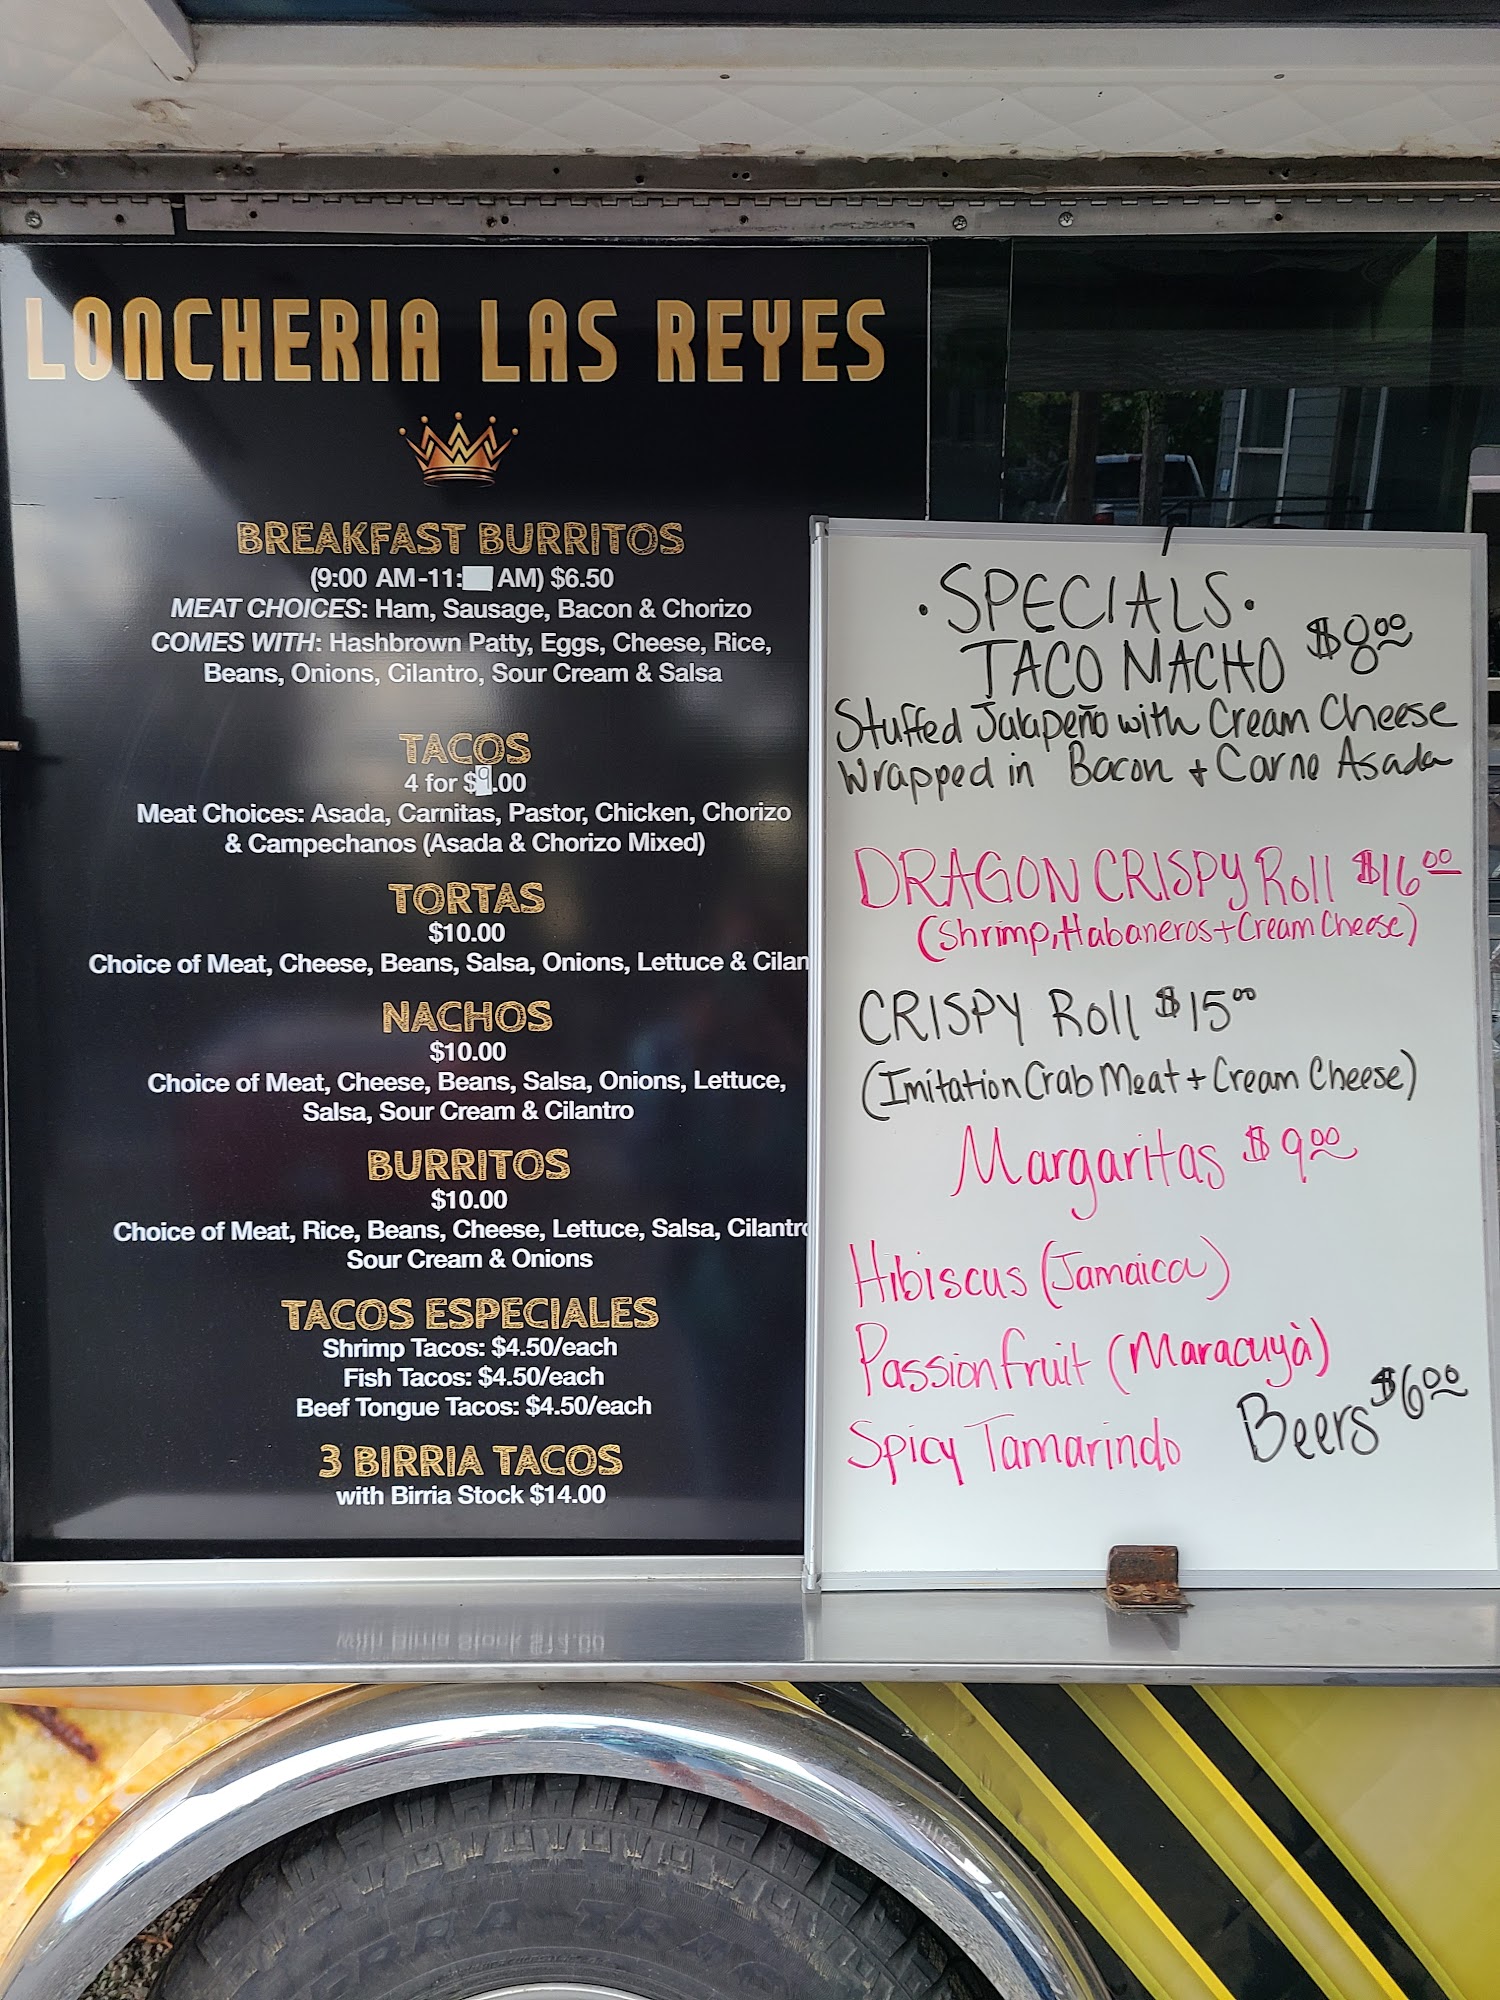 LONCHERIA LAS REYES
BREAKFAST BURRITOS
(9:00 AM-11: AM) $6.50
MEAT CHOICES: Ham, Sausage, Bacon & Chorizo
COMES WITH: Hashbrown Patty, Eggs, Cheese, Rice,
Beans, Onions, Cilantro, Sour Cream & Salsa
TACOS
4 for $9.00
Meat Choices: Asada, Carnitas, Pastor, Chicken, Chorizo
& Campechanos (Asada & Chorizo Mixed)
TORTAS
$10.00
Choice of Meat, Cheese, Beans, Salsa, Onions, Lettuce & Cilan
NACHOS
$10.00
Choice of Meat, Cheese, Beans, Salsa, Onions, Lettuce,
Salsa, Sour Cream & Cilantro
BURRITOS
$10.00
Choice of Meat, Rice, Beans, Cheese, Lettuce, Salsa, Cilantro
Sour Cream & Onions
TACOS ESPECIALES
Shrimp Tacos: $4.50/each
Fish Tacos: $4.50/each
Beef Tongue Tacos: $4.50/each
3 BIRRIA TACOS
with Birria Stock $14.00
·SPECIALS·
TACO MACHO $8.00
Stuffed Jalapeño with Cream Cheese
Wrapped in Bacon + Carne Asada
DRAGON CRISPY Roll $16.00
(Shrimp, Habaneros + Cream Cheese)
CRISPY Roll $15.00
(Imitation Crab Meat + Cream Cheese)
Margaritas $9.00
Hibiscus (Jamaica)
Passionfruit (Maracuyà)
Spicy Tamarindo
Beers $6.00